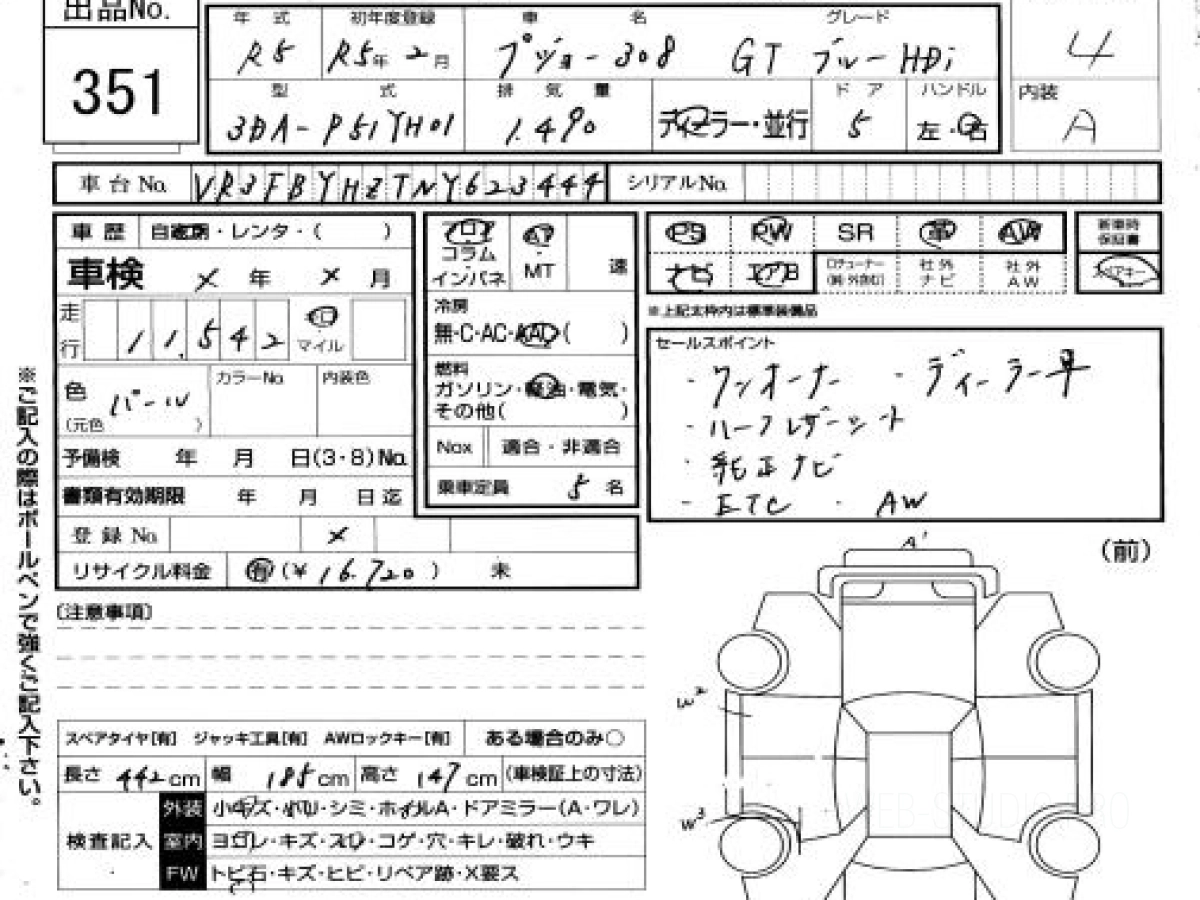 出品No.
351
年式 初年度登録 車名 グレード
R5 R5年2月 プジョー308 GT ブルーHDi
4
型式 排気量 ドア ハンドル 内装
3DA-P51YH01 1.490 ディーラー・並行 5 左・右 A
車台No. VR3FBYHZTNY623444 シリアルNo.
車歴 自家用・レンタ・( )
車検 × 年 × 月
走行 11.542 キロ マイル
色 パール (元色 ) カラーNo. 内装色
予備検 年 月 日(3・8)No.
書類有効期限 年 月 日迄
登録No. ×
リサイクル料金 有(¥16.720) 未
フロア コラム インパネ
AT MT 速
冷房
無・C・AC・AAC( )
燃料
ガソリン・軽油・電気・
その他( )
Nox 適合・非適合
乗車定員 5名
PS PW SR 革 AW 新車時保証書
ナビ エアB 社外ナビ 社外AW スペアキー
※上記太枠内は標準装備品
セールスポイント
・ワンオーナー ・ディーラー車
・ハーフレザーシート
・純正ナビ
・ETC ・AW
(前)
A1
W2
W3
(注意事項)
スペアタイヤ[有] ジャッキ工具[有] AWロックキー[有] ある場合のみ○
長さ 442cm 幅 185cm 高さ 147cm (車検証上の寸法)
検査記入
外装 小キズ・小凹・シミ・ホイルA・ドアミラー(A・ワレ)
室内 ヨゴレ・キズ・スレ・コゲ・穴・キレ・破れ・ウキ
FW トビ石・キズ・ヒビ・リペア跡・X要ス
※ご記入の際はボールペンで強くご記入下さい。